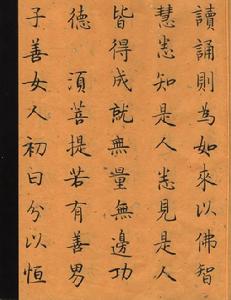 讀誦則為如來以佛智
慧悉知是人悉見是人
皆得成就無量無邊功
德 須菩提若有善男
子善女人初日分以恒